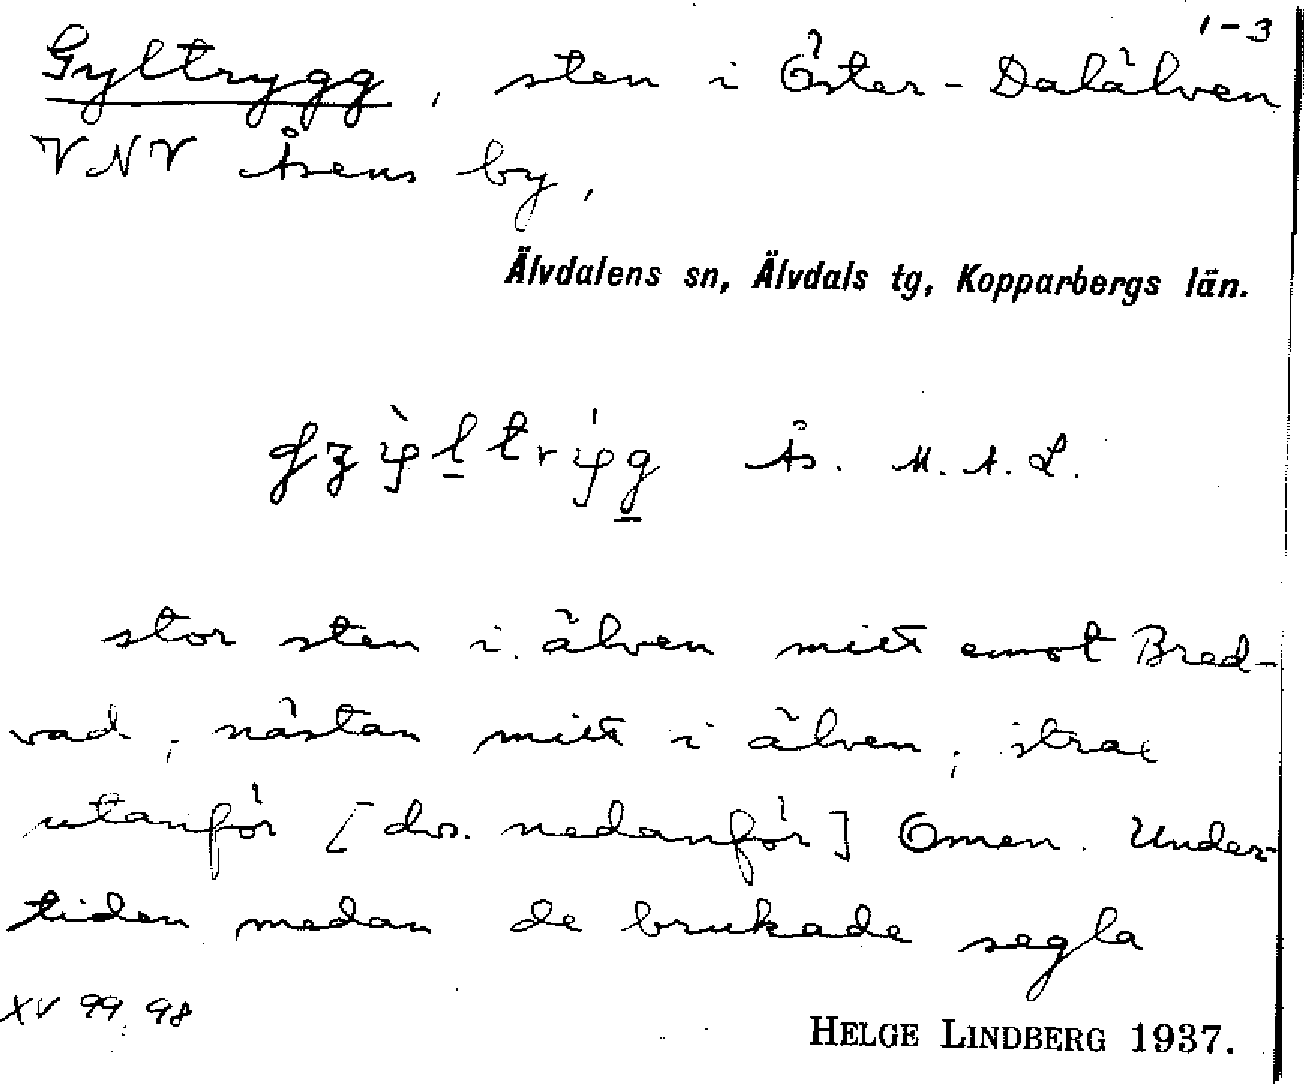 1-3
Gyltrygg, sten i Öster-Dalälven
VNV Åsens by,
Älvdalens sn, Älvdals tg, Kopparbergs län.
Ås. M.A.L.
stor sten i älven mitt emot Bred-
vad, nästan mitt i älven, strax
utanför [dvs. nedanför] Omen. Under
tiden medan de brukade segla
XV 99, 98
HELGE LINDBERG 1937.